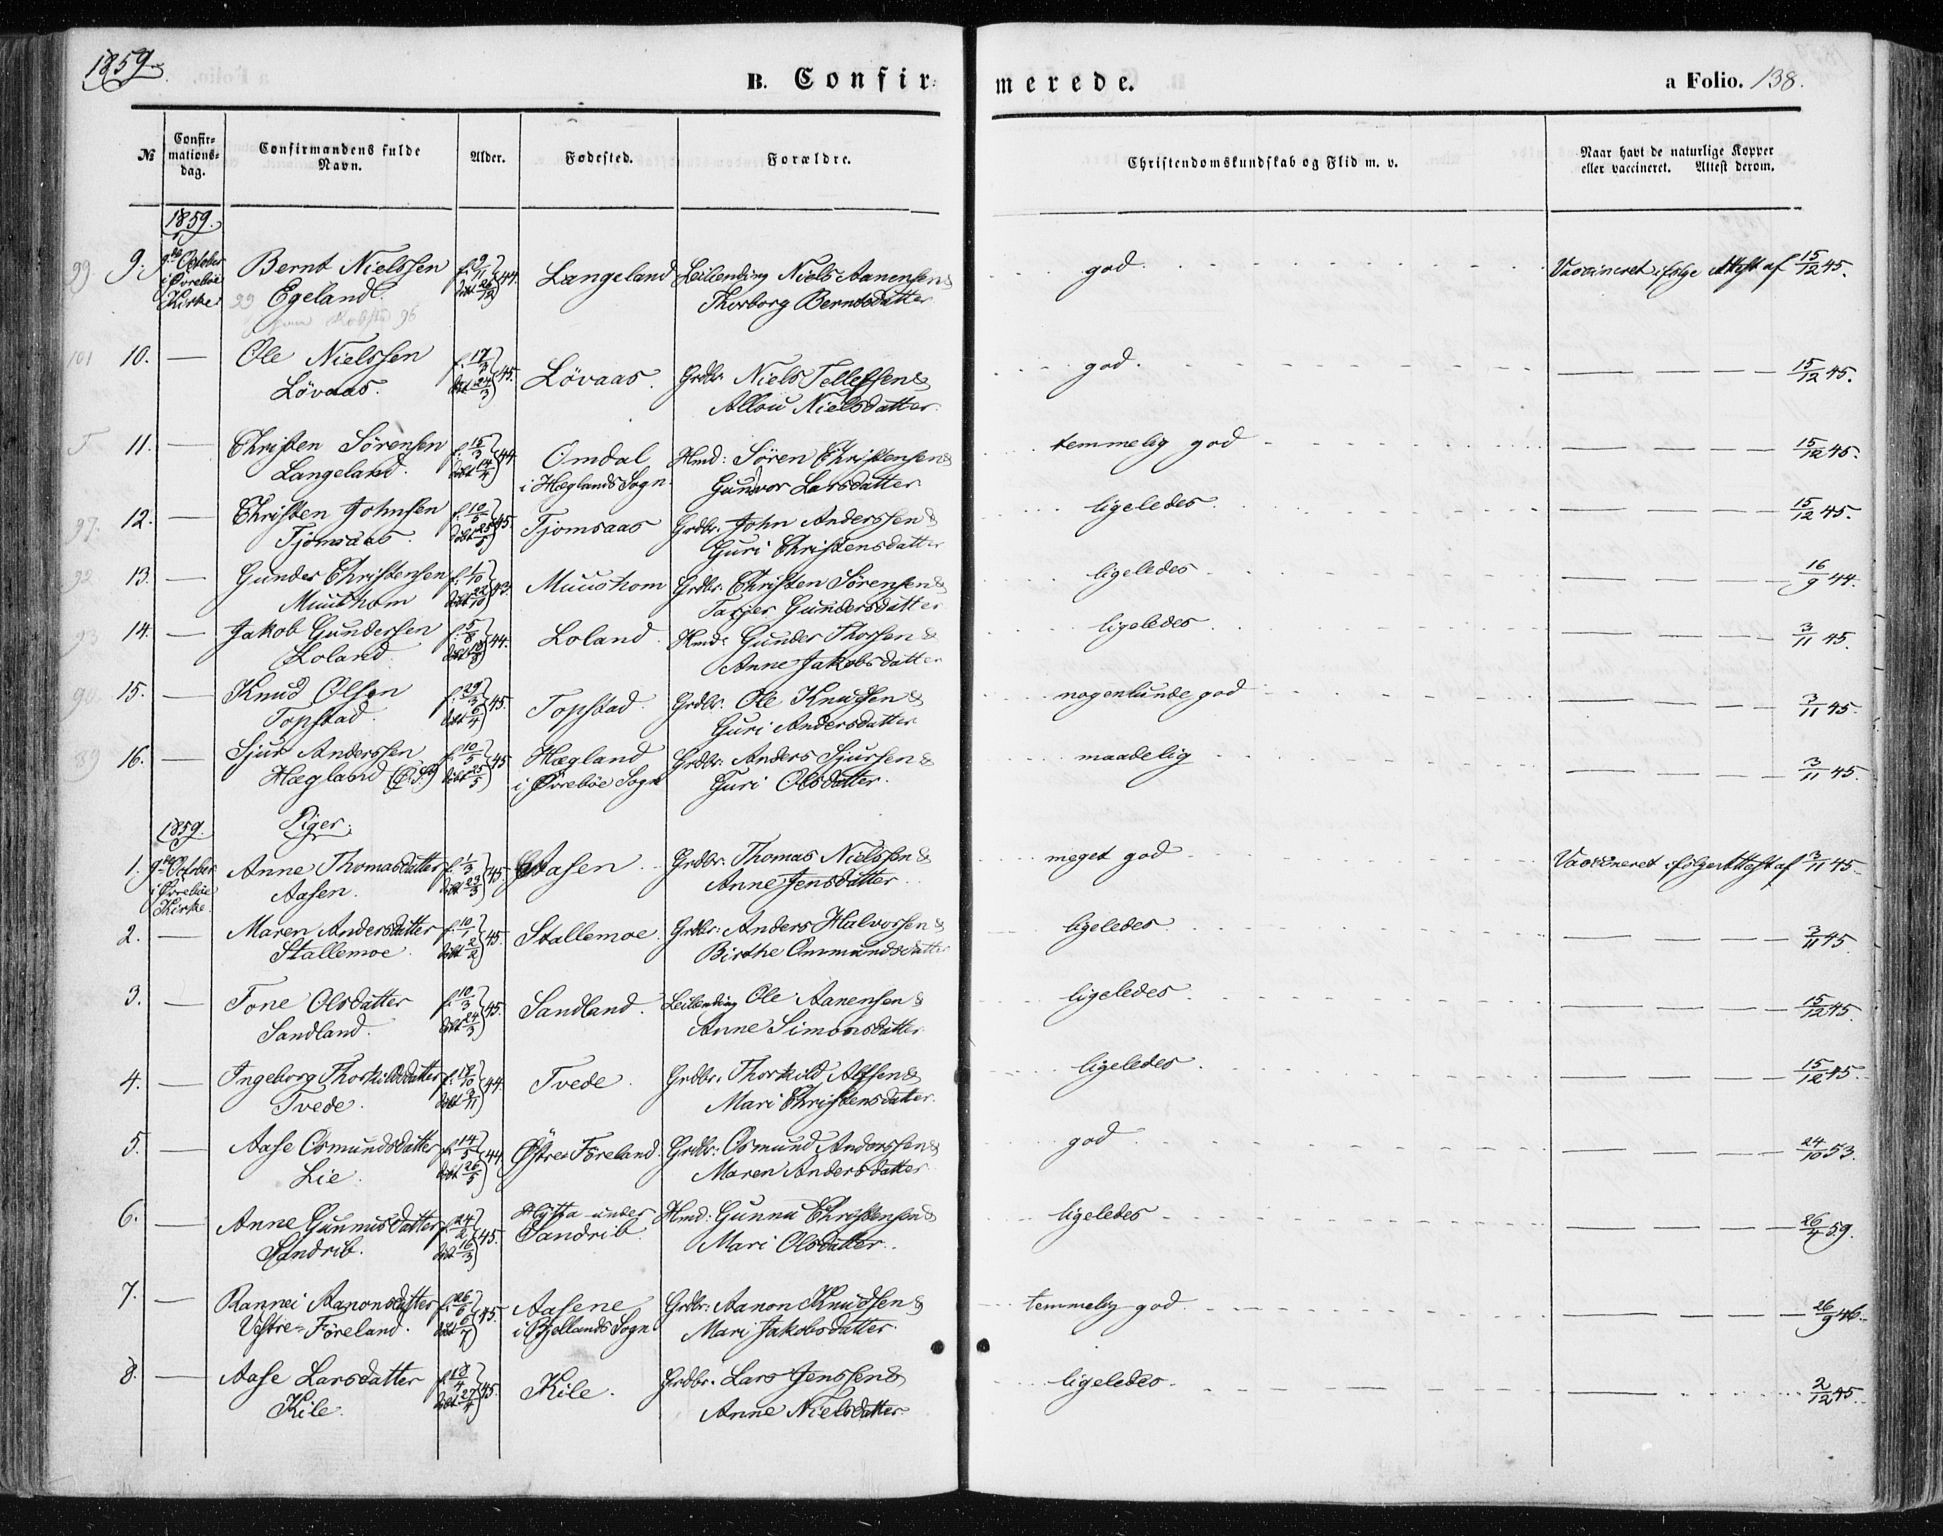 1859.
B. Confirmerede.
a Folio. 138.
№
Confirmations-dag.
Confirmandens fulde Navn.
Alder.
Fødested.
Forældre.
Christendomskundskab og Flid m. v.
Naar havt de naturlige Kopper eller vaccineret. Attest derom.
1859.
99 9. 9de October i Øvrebøe Kirke Bernt Nielssen Egeland. f. 9/11 44. Langeland Leilending Niels Aanensen & Thorborg Berntsdatter god. Vaccineret ifølge Attest af 15/12 45.
101 10. — Ole Nielssen Lövaas. f. 17/3 døbt 24/3 45. Lövaas. Grdbr. Niels Tellefsen & Allou Nielsdatter. god. — 15/12 45.
11. — Christen Sörensen Langeland. f. 15/3 døbt 14/4 44. Omdal i Hæglands Sogn. Hmd: Sören Christensen & Gunvor Larsdatter temmelig god — 15/12 45.
97. 12. — Christen Johnsen Tjomsaas. f. 10/5 døbt 25/5 45. Tjomsaas Grdbr. John Anderssen & Guri Christensdatter ligeledes — 15/12 45.
92 13. — Gunder Christensen Muushom f. 1/10 døbt 22/10 43. Muushom Grdbr. Christen Sörensen & Tarjer Gundersdatter ligeledes — 16/9 44.
93 14. — Jakob Gundersen Loland. f. 5/8 44. Loland. Hmd: Gunder Thorsen & Anne Jakobsdatter ligeledes — 3/11 45.
90 15. — Knud Olsen Topstad. f. 29/3 døbt 6/4 45. Topstad. Grdbr. Ole Knudsen & Guri Andersdatter nogenlunde god — 3/11 45.
89 16. — Sjur Anderssen Hægland f. 10/5 døbt 25/5 45 Hægland i Øvrebøe Sogn Grdbr. Anders Sjursen & Guri Olsdatter. maadelig — 3/11 45.
1859. Piger.
1. 9de October i Øvrebøe Kirke. Anne Thomasdatter Aasen. f. 1/3 døbt 23/3 45. Aasen. Grdbr. Thomas Nielssen & Anne Jensdatter meget god Vaccineret ifølge Attest af 3/11 45.
2. — Maren Andersdatter Stallemoe. f. 10/1 døbt 2/2 45. Stallemoe. Grdbr: Anders Halvorsen & Birthe Ommundsdatter ligeledes — 3/11 45.
3. — Tone Olsdatter Sandland. f. 10/3 døbt 24/3 45. Sandland. Leilending Ole Aanensen & Anne Simonsdatter ligeledes — 15/12 45.
4. — Ingeborg Thorkildsdatter Tvede. f. 17/10 døbt 3/11 44. Tvede. Grdbr. Thorkild Alfsen & Mari Christensdatter. ligeledes — 15/12 45.
5. — Aase Osmundsdatter Lie. f. 14/5 døbt 26/5 44. Østre Föreland. Grdbr: Osmund Anderssen & Maren Andersdatter god — 24/10 53.
6. — Anne Gunnusdatter Sandrib. f. 24/2 døbt 16/3 45. Hytta under Sandrib. Hmd: Gunnu Christensen & Mari Olsdatter. ligeledes — 26/4 59.
7. — Rannei Aanonsdatter Vestre-Föreland. f. 26/6 døbt 6/7 45. Aasene i Bjellands Sogn Grdbr: Aanon Knudsen & Mari Jakobsdatter. temmelig god — 26/9 46.
8. — Aase Larsdatter Kile. f. 18/4 døbt 27/4 45. Kile. Grdbr. Lars Jenssen & Anne Nielsdatter. ligeledes — 2/12 45.